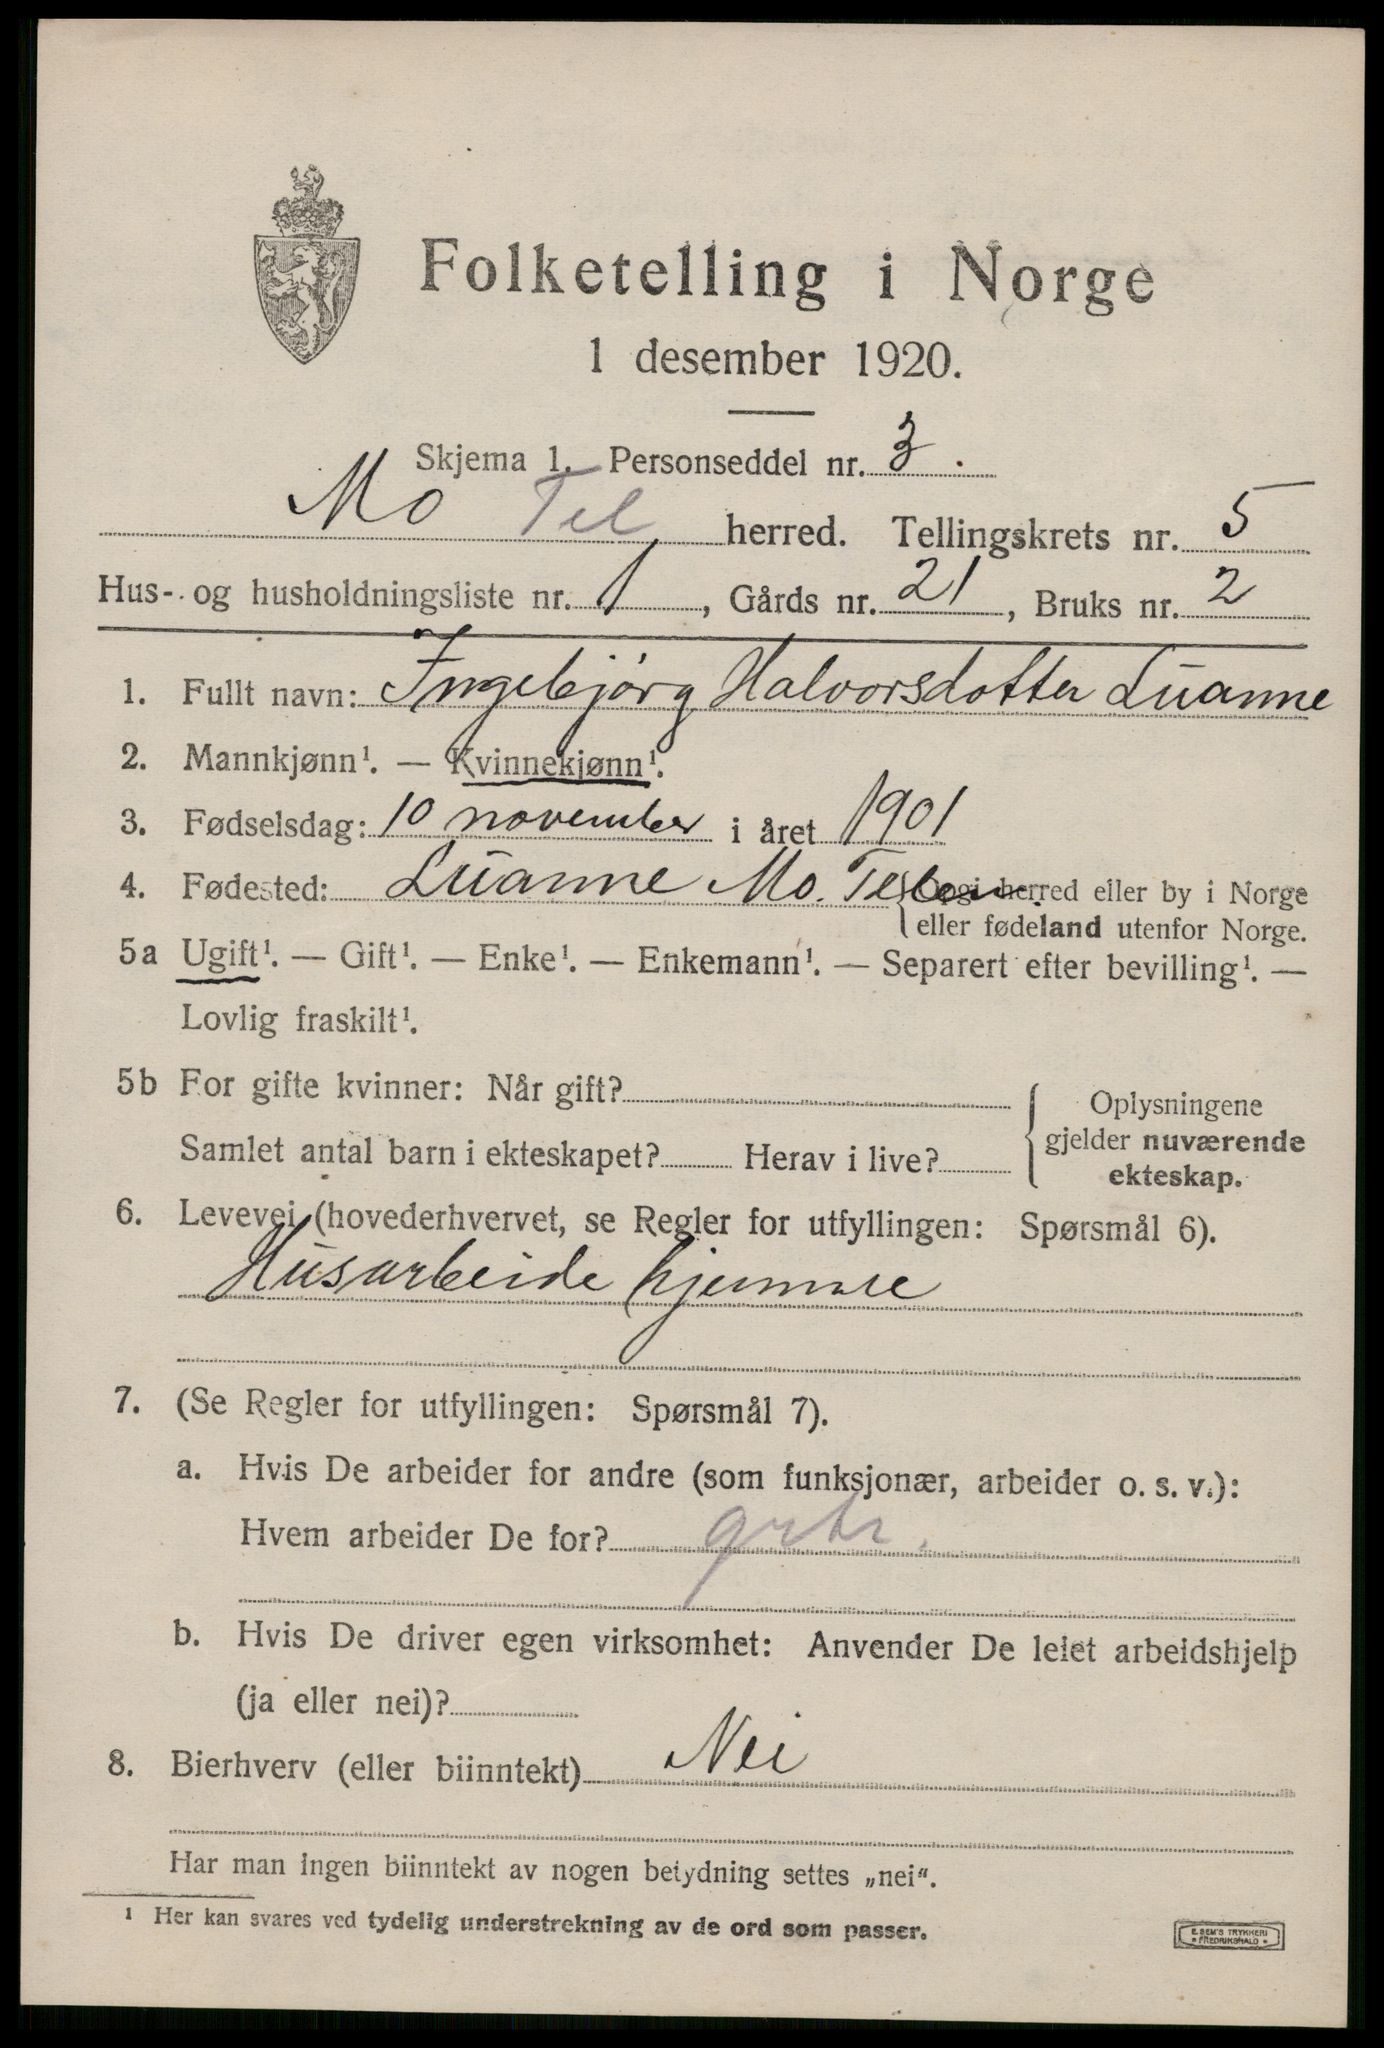 Folketelling i Norge
1 desember 1920.
Skjema 1. Personseddel nr. 3.
Mo Tel herred. Tellingskrets nr. 5
Hus- og husholdningsliste nr. 1, Gårds nr. 21, Bruks nr. 2
1. Fullt navn: Ingebjørg Halvorsdotter Luanne
2. Mannkjønn¹. — Kvinnekjønn¹.
3. Fødselsdag: 10 november i året 1901
4. Fødested: Luanne Mo. {Opgi herred eller by i Norge
eller fødeland utenfor Norge.
5a Ugift¹. — Gift¹. — Enke¹. — Enkemann¹. — Separert efter bevilling¹. —
Lovlig fraskilt¹.
5b For gifte kvinner: Når gift?
Samlet antal barn i ekteskapet? Herav i live?
Oplysningene
gjelder nuværende
ekteskap.
6. Levevei (hovederhvervet, se Regler for utfyllingen: Spørsmål 6).
Husarbeide hjemme
7. (Se Regler for utfyllingen: Spørsmål 7).
a. Hvis De arbeider for andre (som funksjonær, arbeider o. s. v.):
Hvem arbeider De for?
b. Hvis De driver egen virksomhet: Anvender De leiet arbeidshjelp
(ja eller nei)?
8. Bierhverv (eller biinntekt) Nei
Har man ingen biinntekt av nogen betydning settes „nei“.
¹ Her kan svares ved tydelig understrekning av de ord som passer.
E. SEM'S TRYKKERI
* FREDRIKSHALD *